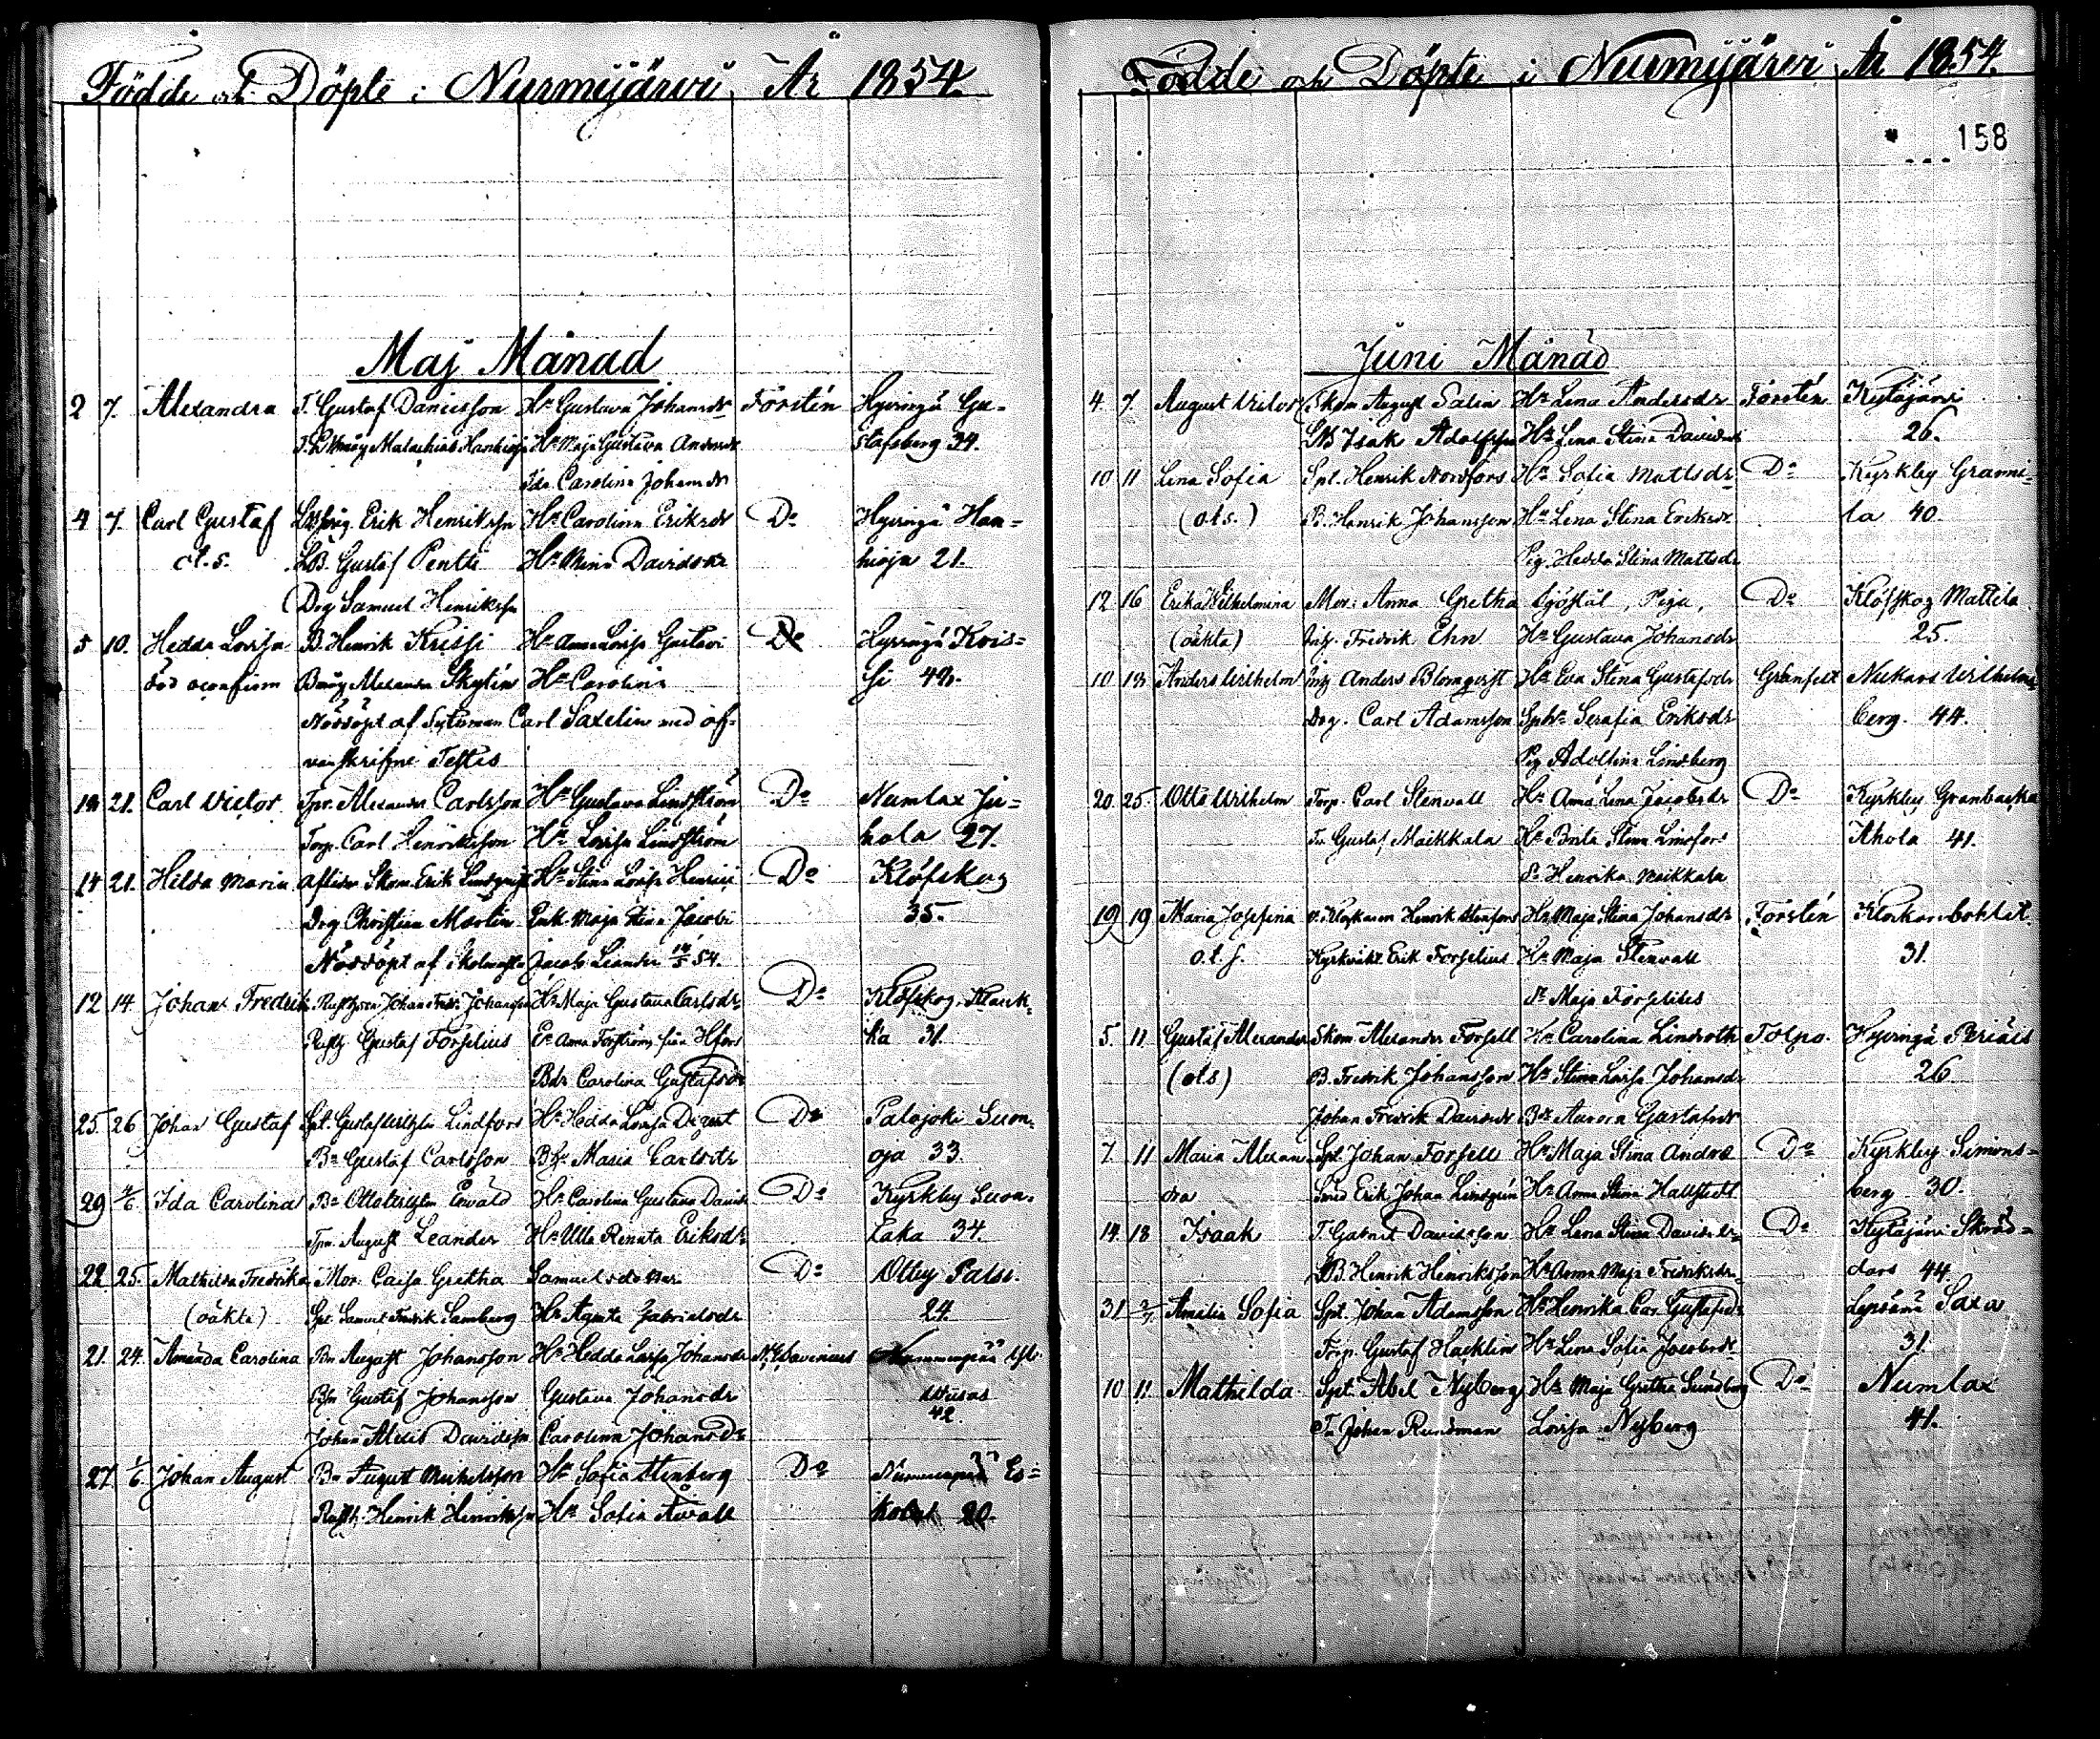 Födde och Döpte i Nurmijärvi År 1854.
Maj Månad
2 7. Alexandra T. Gustaf Danielsson Hr Gustava Johansdr Forstén Hyvingä Gu=
Malachias Hr Maja Gustava Andersdr stafsberg 34.
Carolina Johansdr
4 7. Carl Gustaf Erik Henriksson Hr Carolina Eriksdr Do Hyvingä Han=
o.t.s. LB. Gustaf Pentti Hr Mina Davidsdr hioja 21.
Drg Samuel Henriksson
5 10. Hedda Lovisa B. Henrik Krissi Hr Anna Lovisa Gustavi Do Hyvingä Kris=
död oconfirm Alexander Skytén Hr Carolina si 42.
Nöddöpt af Carl Saxelin med of=
vanskrifne Testis
14 21. Carl Victor Alexander Carlsson Hr Gustava Lindström Do Numlax Ju=
Torp. Carl Henriksson Hr Lovisa Lindström hola 27.
14 21. Hilda Maria Afliden Skom Erik Lindqvist Hr Stina Lovisa Henrici Do Klöfskog
Drg Christian Mårtin Enk Maja Stina Jacobi 35.
Nöddöpt af Jacob Leander 14/5 54.
12 14 Johan Fredrik Johan Fredr. Johansson Hr Maja Gustava Carlsdr Do Klöfskog, Klauk
Gustaf Forselius Anna Forström från Hfors ka 31.
Bdr Carolina Gustafsdr
25. 26 Johan Gustaf Spt. Gustaf Wilhelm Lindfors Hr Hedda Lovisa Do Palojoki Suon=
Bn Gustaf Carlsson Maria Carlsdtr oja 33.
29 4/6. Ida Carolina Bn Otto Wilhelm Ewald Hr Carolina Gustava Davidsdr Do Kyrkby Suon=
August Leander Hr Ulla Renata Eriksdr taka 34.
22. 25. Mathilda Fredrika Mor. Caisa Gretha Samuelsdotter Do Ottby Palss.
(oäkta) Spt Samuel Fredrik Samberg Hr Agneta Gabrielsdr 24.
21. 24. Amanda Carolina Bn August Johansson Hr Hedda Lovisa Johansdr Savenius Nummenpää
Gustaf Johansson Gustava Johansdr Uusas
Johan Alexis Davidsson Carolina Johansdr 42.
27. 1/6. Johan August Bn August Michelsson Hr Sofia Stenberg Do Nummenpää Es=
Rusth. Henrik Henriksson Hr Sofia Åvall kolas 20.
Födde och Döpte i Nurmijärvi År 1854.
158
Juni Månad
4. 7. August Victor Skom August Salin Hr Lina Andersdr Forstén Hytäjärvi
LB Isak Adolfsson Hr Lena Stina Davidsdr 26.
10 11 Lena Sofia Spt. Henrik Nordfors Hr Sofia Mattsdr Do Kyrkby Granni=
(o.t.s.) B. Henrik Johansson Hr Lena Stina Eriksdr la 40.
Pig. Hedda Stina Mattsdr
12 16 Erika Wilhelmina Mor: Anna Gretha Sjöstål, Piga, Do Klöfskog Mattila
(oäkta) Inh. Fredrik Ehn Hr Gustava Johansdr 25.
10 18 Anders Wilhelm Inh Anders Blomqvist Hr Eva Stina Gustafsdr Granfelt Nukars Wilhelms
Drg. Carl Adamsson Serafia Eriksdr berg. 44.
Pig Adolfina Lindberg
20. 25. Otto Wilhelm Torp. Carl Stenvall Hr Anna Lena Jacobsdr Do Kyrkby Granbacka
Gustaf Maikkala Hr Brita Stina Lindfors Ahola 41.
Henrika Maikkala
19 19 Maria Josefina Henrik Stenfors Hr Maja Stina Johansdr Forstén Klockarebohlet
o.t.s. Kyrkväkt Erik Forselius Hr Maja Stenvall 31.
Maja Forselius
5. 11 Gustaf Alexander Skom. Alexander Forsell Hr Carolina Lindroth Tolpo. Hyvingä Periäis
(o.t.s) B. Fredrik Johansson Hr Stina Lovisa Johansdr 26
Johan Fredrik Davidsdr Bdr Aurora Gustafsdr
7. 11 Maria Alexan= Spt Johan Forsell Hr Maja Stina Andræ Do Kyrkby Simons=
dra Smed Erik Johan Lindgrén Hr Anna Stina Hallstedt berg 30.
14. 18 Isaak T. Gabriel Davidsson Hr Lena Stina Davidsdr Do Hytäjärvi Skräd=
LB. Henrik Henriksson Hr Anna Maja Fredriksdr dars 44.
31. 2/7 Amalia Sofia Spt. Johan Adamsson Hr Henrika Car. Gustafsdr Lepsämä Saxa
Torp. Gustaf Hacklin Hr Lena Sofia Jacobsdr 31.
10 11 Mathilda Spt. Abel Nyberg Hr Maja Gretha Sundberg Do Numlax
Johan Rundman Lovisa Nyberg 41.